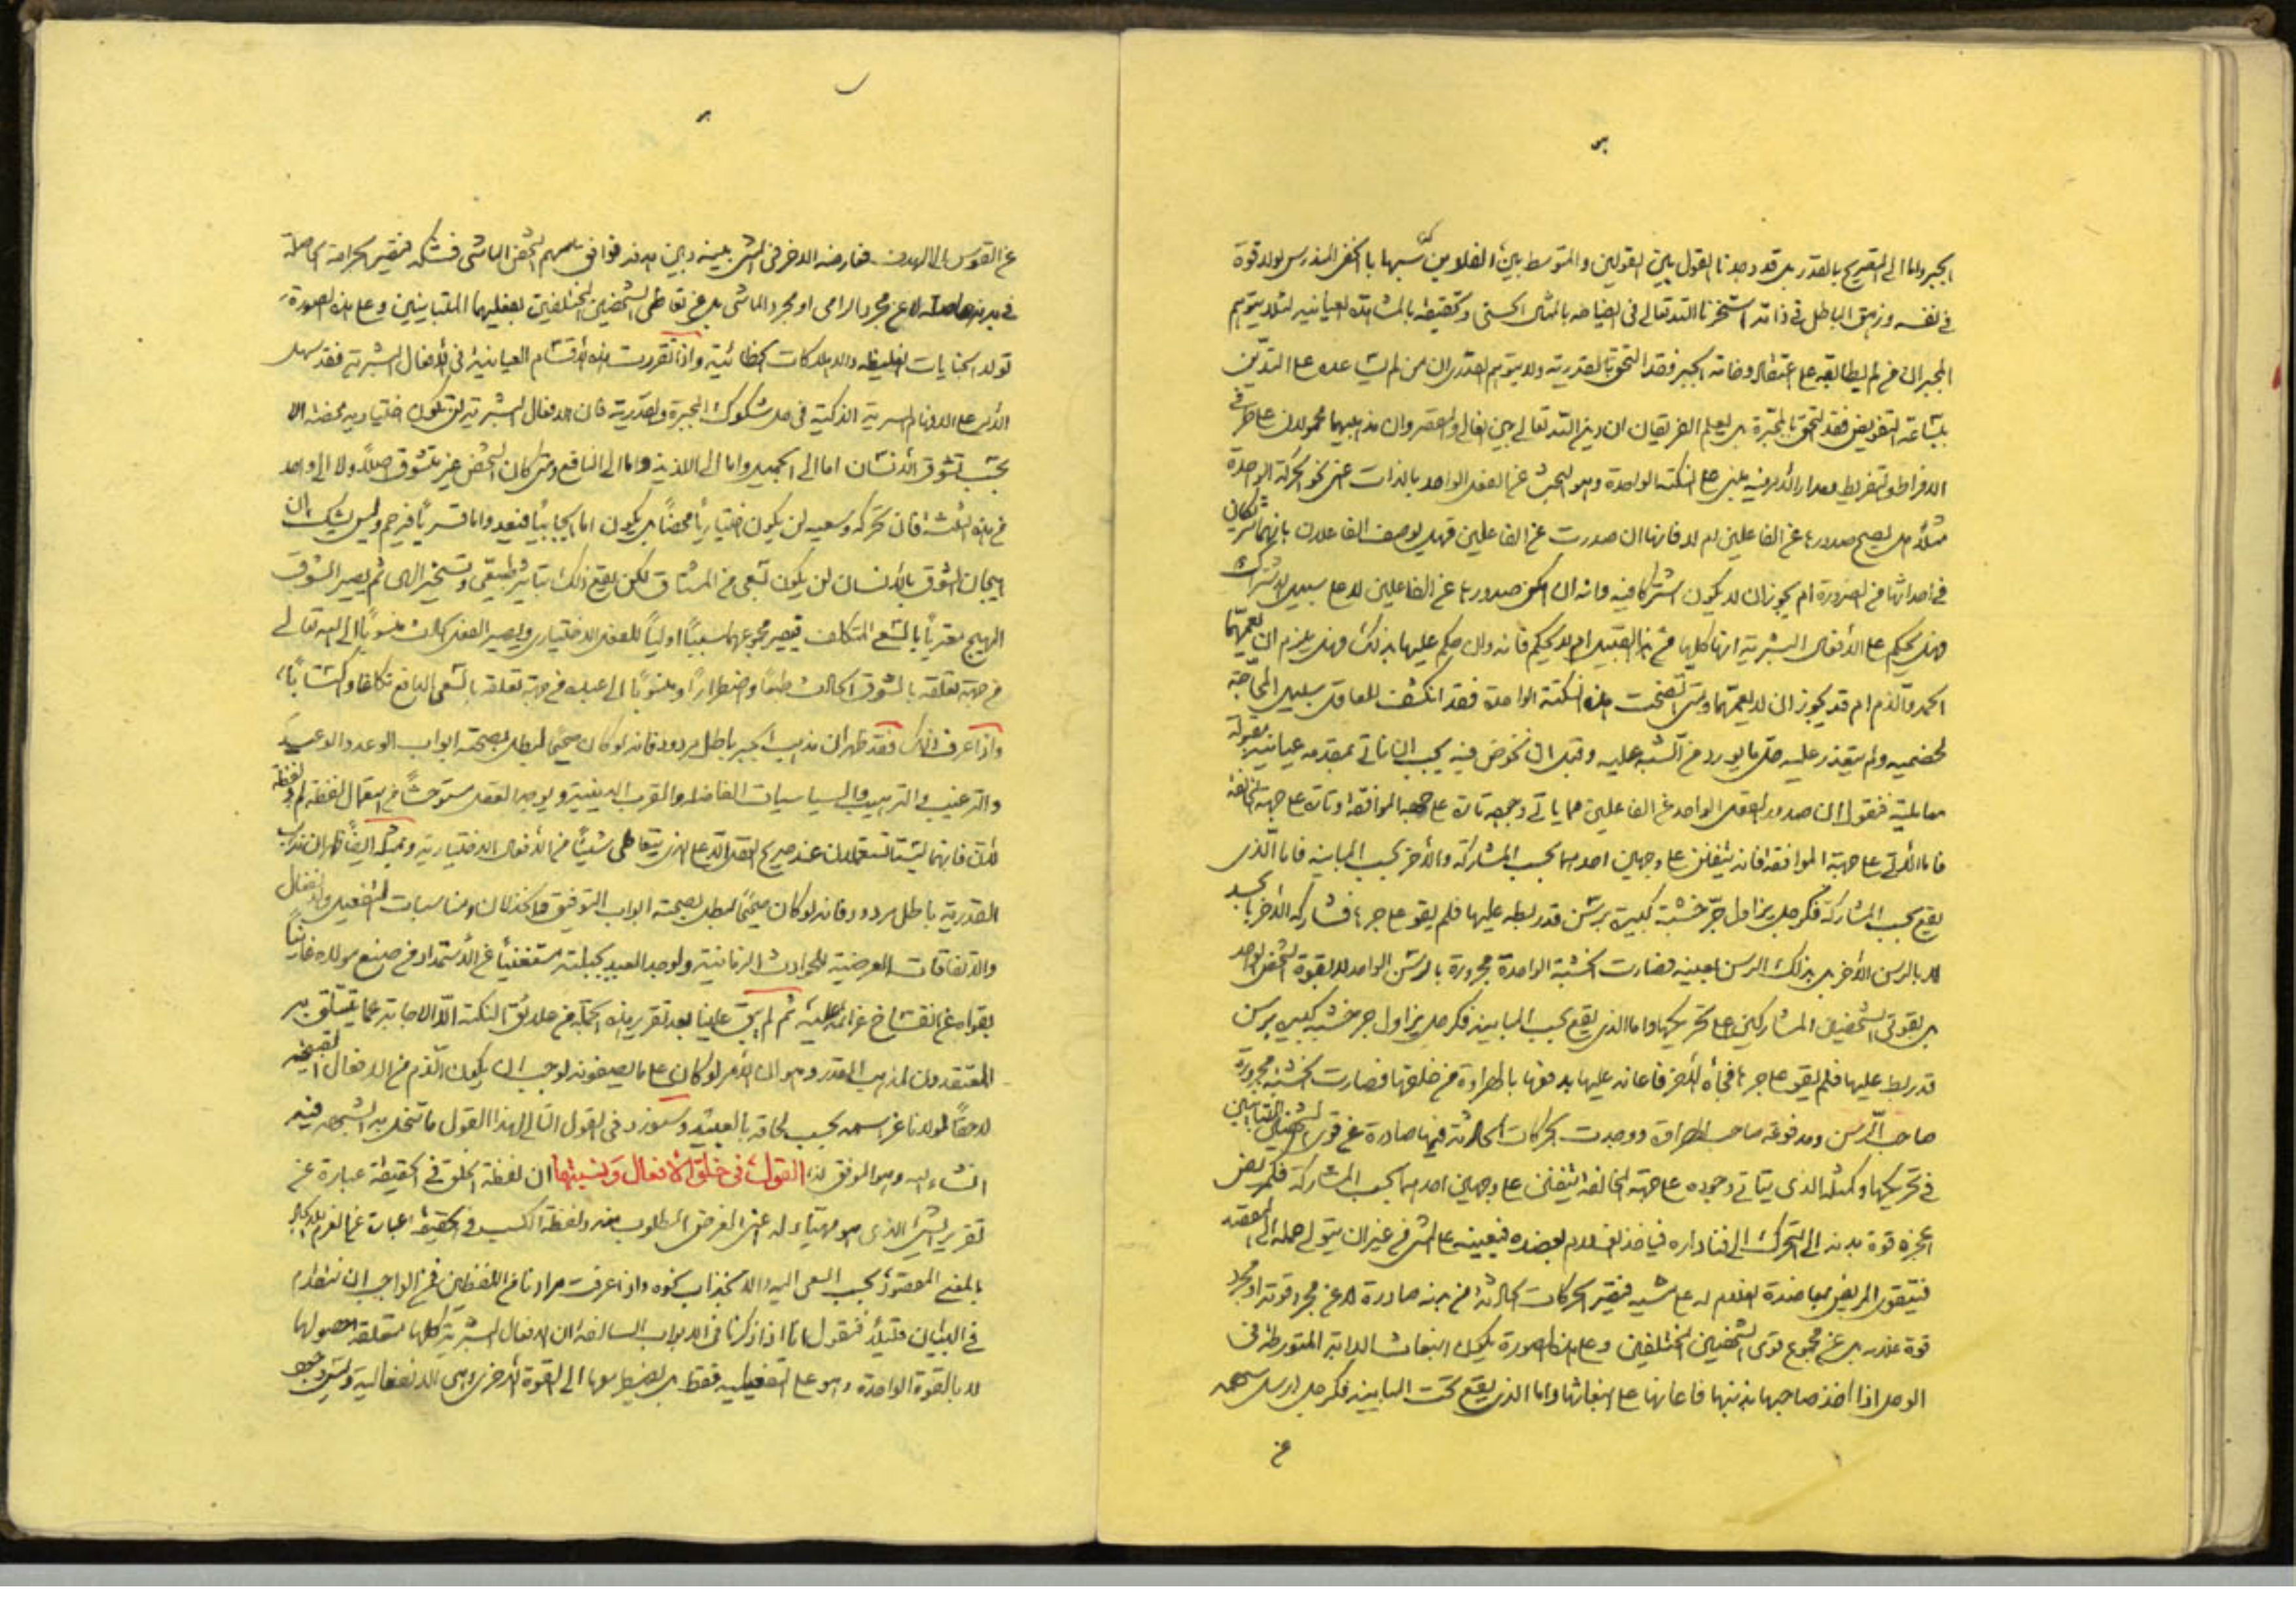 الجبر واما الى التصريح بالقدر بل قد وجدنا القول بين القولين والمتوسط بين
في نفسه وزهق الباطل في ذاته استخرنا الله تعالى في ايضاحه بالمثال الحسي وتحقيقه بالمشاهدة العيانية لئلا يتوهم
المجبر ان من لم يطابقه على اعتقاد وخامة الجبر فقد التحق بالقدرية ولا يتوهم القدري ان من لم يساعده على التدين
بشاعة التفويض فقد التحق بالمجبرة بل يعلم الفريقان ان دين الله تعالى بين الغالي والمقصر وان مذهبيهما محمولان على طرفي
الافراط والتفريط ومدار الامر فيه مبني على النكتة الواحدة وهو البحث عن الفعل الواحد بالذات عنى نحو الحركة الواحدة
مثلا هل يصح صدورها عن الفاعلين ام لا فانها ان صدرت عن الفاعلين فهل يوصف الفاعلان بانهما شريكان
في احداثها من الضرورة ام يجوز ان لا يكون اشتراكا فيه وانه ان امكن صدورها عن الفاعلين لا على سبيل الاشتراك
فهل يحكم على الافعال البشرية انها كلها من هذا القبيل ام لا يحكم فانه وان حكم عليها بذلك فهل يلزم ان يعمهما
الحمد والذم ام قد يجوز ان لا يعمهما ومتى اتضحت هذه النكتة الواحدة فقد انكشف للعاقل سبيل المحاجة
لخصميه ولم يتعذر عليه حل ما يورد من الشبه عليه وقبل ان نخوض فيه يجب ان ناتي بمقدمة عيانية
فنقول ان صدور الفعل الواحد عن الفاعلين مما ياتي وجهه تارة على جهة الموافقة وتارة على جهة المخالفة
فاما الآتي على جهة الموافقة فانه يتفنن على وجهين احدهما بحسب المشاركة والآخر بحسب المباينة فاما الذي
يقع بحسب المشاركة فكرجل يزاول جر خشبة كبيرة برسن قد ربطه عليها فلم يقو على جرها فشاركه الآخر
لا بالرسن الآخر بل بذلك الرسن بعينه فصارت الخشبة الواحدة مجرورة بالرسن الواحد لا بقوة الشخص الواحد
بل بقوتي الشخصين المشاركين على تحريكها واما الذي يقع بحسب المباينة فكرجل يزاول جر خشبة كبيرة برسن
قد ربط عليها فلم يقو على جرها فجاء الآخر فاعانه عليها بدفعها من خلفها فصارت الخشبة مجرورة
صاحب الرسن ومدفوعة صاحب ووجدت الحركات الحادثة فيها صادرة عن قوى الشخصين المتباينين
في تحريكها وكمثله الذي يتاتى وجوده على جهة المخالفة يتفنن على وجهين احدهما بحسب المشاركة فكمريض
عجزه قوة بدنه الى التحرك الى فناء داره فياخذ الغلام بعضده فيعينه على المشي من غير ان يتولى حمله الى المقصد
فيتقوى المريض بمعاضدة الغلام له على مشيه فتصير الحركات الحادثة من بدنه صادرة لا عن مجرد قوته او مجرد
قوة غلامه بل عن مجموع قوى الشخصين المختلفين وعلى هذه الصورة يكون انبعاث الدابة المتورطة في
الوحل اذا اخذ صاحبها بذنبها فاعانها على انبعاثها واما الذي يقع تحت المباينة فكرجل ارسل سهمه
عن
عن القوس الى الهدف فعارضه الآخر في المشي بينه وبين الهدف فوافق سهمهم الشخص الماشي فشكه فتصير الجراحة الحاصلة
في بدنه لا عن مجرد الرامي او مجرد الماشي بل عن تعاطي الشخصين المختلفين بفعليهما المتباينين وعلى هذه الصورة
تولد الجنايات الغليظة والاهلاكات الخطائية واذا تقررت هذه الاقسام العيانية في الافعال البشرية فقد سهل
الامر على الافهام السرية الذكية في حل شكوك المجبرة والقدرية فان الافعال البشرية لن تكون اختيارية محضة الا
بحسب تشوق الانسان اما الى الجميل واما الى اللذيذ واما الى النافع ومتى كان الشخص غير متشوق اصلا ولا الى واحد
من هذه الثلثة فان تحركه وسعيه لن يكون اختياريا محضا بل يكون اما واما قسريا وليس يشك ان
هيجان الشوق بالانسان لن يكون بسعي من المشتاق لكن يقع ذلك بتاثير طبيعي وتسخير الهي ثم يصير الشوق
المهيج مقترنا بالسعي المتكلف فيصير مجموعهما سببا اوليا للفعل الاختياري ويصير الفعل الحادث منسوبا الى الله تعالى
من جهة تعلقه بالشوق الحادث طبعا واضطرارا ومنسوبا الى عبده من جهة تعلقه بالسعي الواقع تكلفا واكتسابا
واذا عرف ذلك فقد ظهر ان مذهب الجبر باطل مردود فانه لو كان صحيحا لبطل بصحته ابواب الوعد والوعيد
والترغيب والترهيب والسياسات الفاضلة والقرب الدينية ولوجد العقل مستوحشا من استعمال لفظة لم ولفظة
لان فانهما ليستا تستعملان عند صريح العقل الا على الذي يتعاطى شيئا من الافعال الاختيارية وبمثله ايضا ظهر ان مذهب
القدرية باطل مردود فانه لو كان صحيحا لبطل بصحته ابواب التوفيق والخذلان ومناسبات التفعيل والانفعال
والاتفاقات العرضية للحوادث الزمانية ولوجد العبد بجبلته مستغنيا عن الاستمداد من صنع مولاه
بقواه عن انفساخ عزائمه عليه ثم لم يبق علينا بعد تقرير هذه الجملة من علائق النكتة الا الاجابة عما يتعلق به
المعتقدون لمذهب القدر وهو ان الامر لو كان على ما يصفونه لوجب ان يكون الذم من الافعال القبيحة
لاحقا لمولانا عز اسمه بحسب لحاقه بالعبيد وسنورد في القول التالي لهذا القول ما تنحل به الشبهة فيه
انشاء الله وهو الموفق لذلك القول في خلق الافعال ونسبتها ان لفظة الخلق في الحقيقة عبارة عن
تقرير الشئ الذي هو مهيأ له اعني الغرض المطلوب منه ولفظة الكسب في الحقيقة عبارة عن
بالمعنى المقصود بحسب السعي اليه والانجذاب نحوه واذ عرفت مرادنا من اللفظين فمن الواجب ان نتقدم
في البيان قليلا فنقول انا اذ ذكرنا في الابواب السالفة ان الافعال البشرية كلها متعلقة الحصول
لا بالقوة الواحدة وهو على التفعيلية فقط بل بانضمامها الى القوة الاخرى وهي الانفعالية